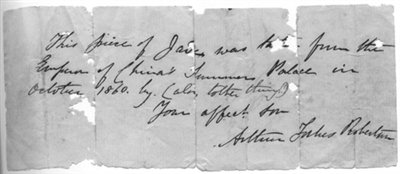 This piece of Jade was tak from the
Emperor of China's Summer Palace in
October 1860. by. (along tother things)
Your affect son
Arthur Forbes Robertson